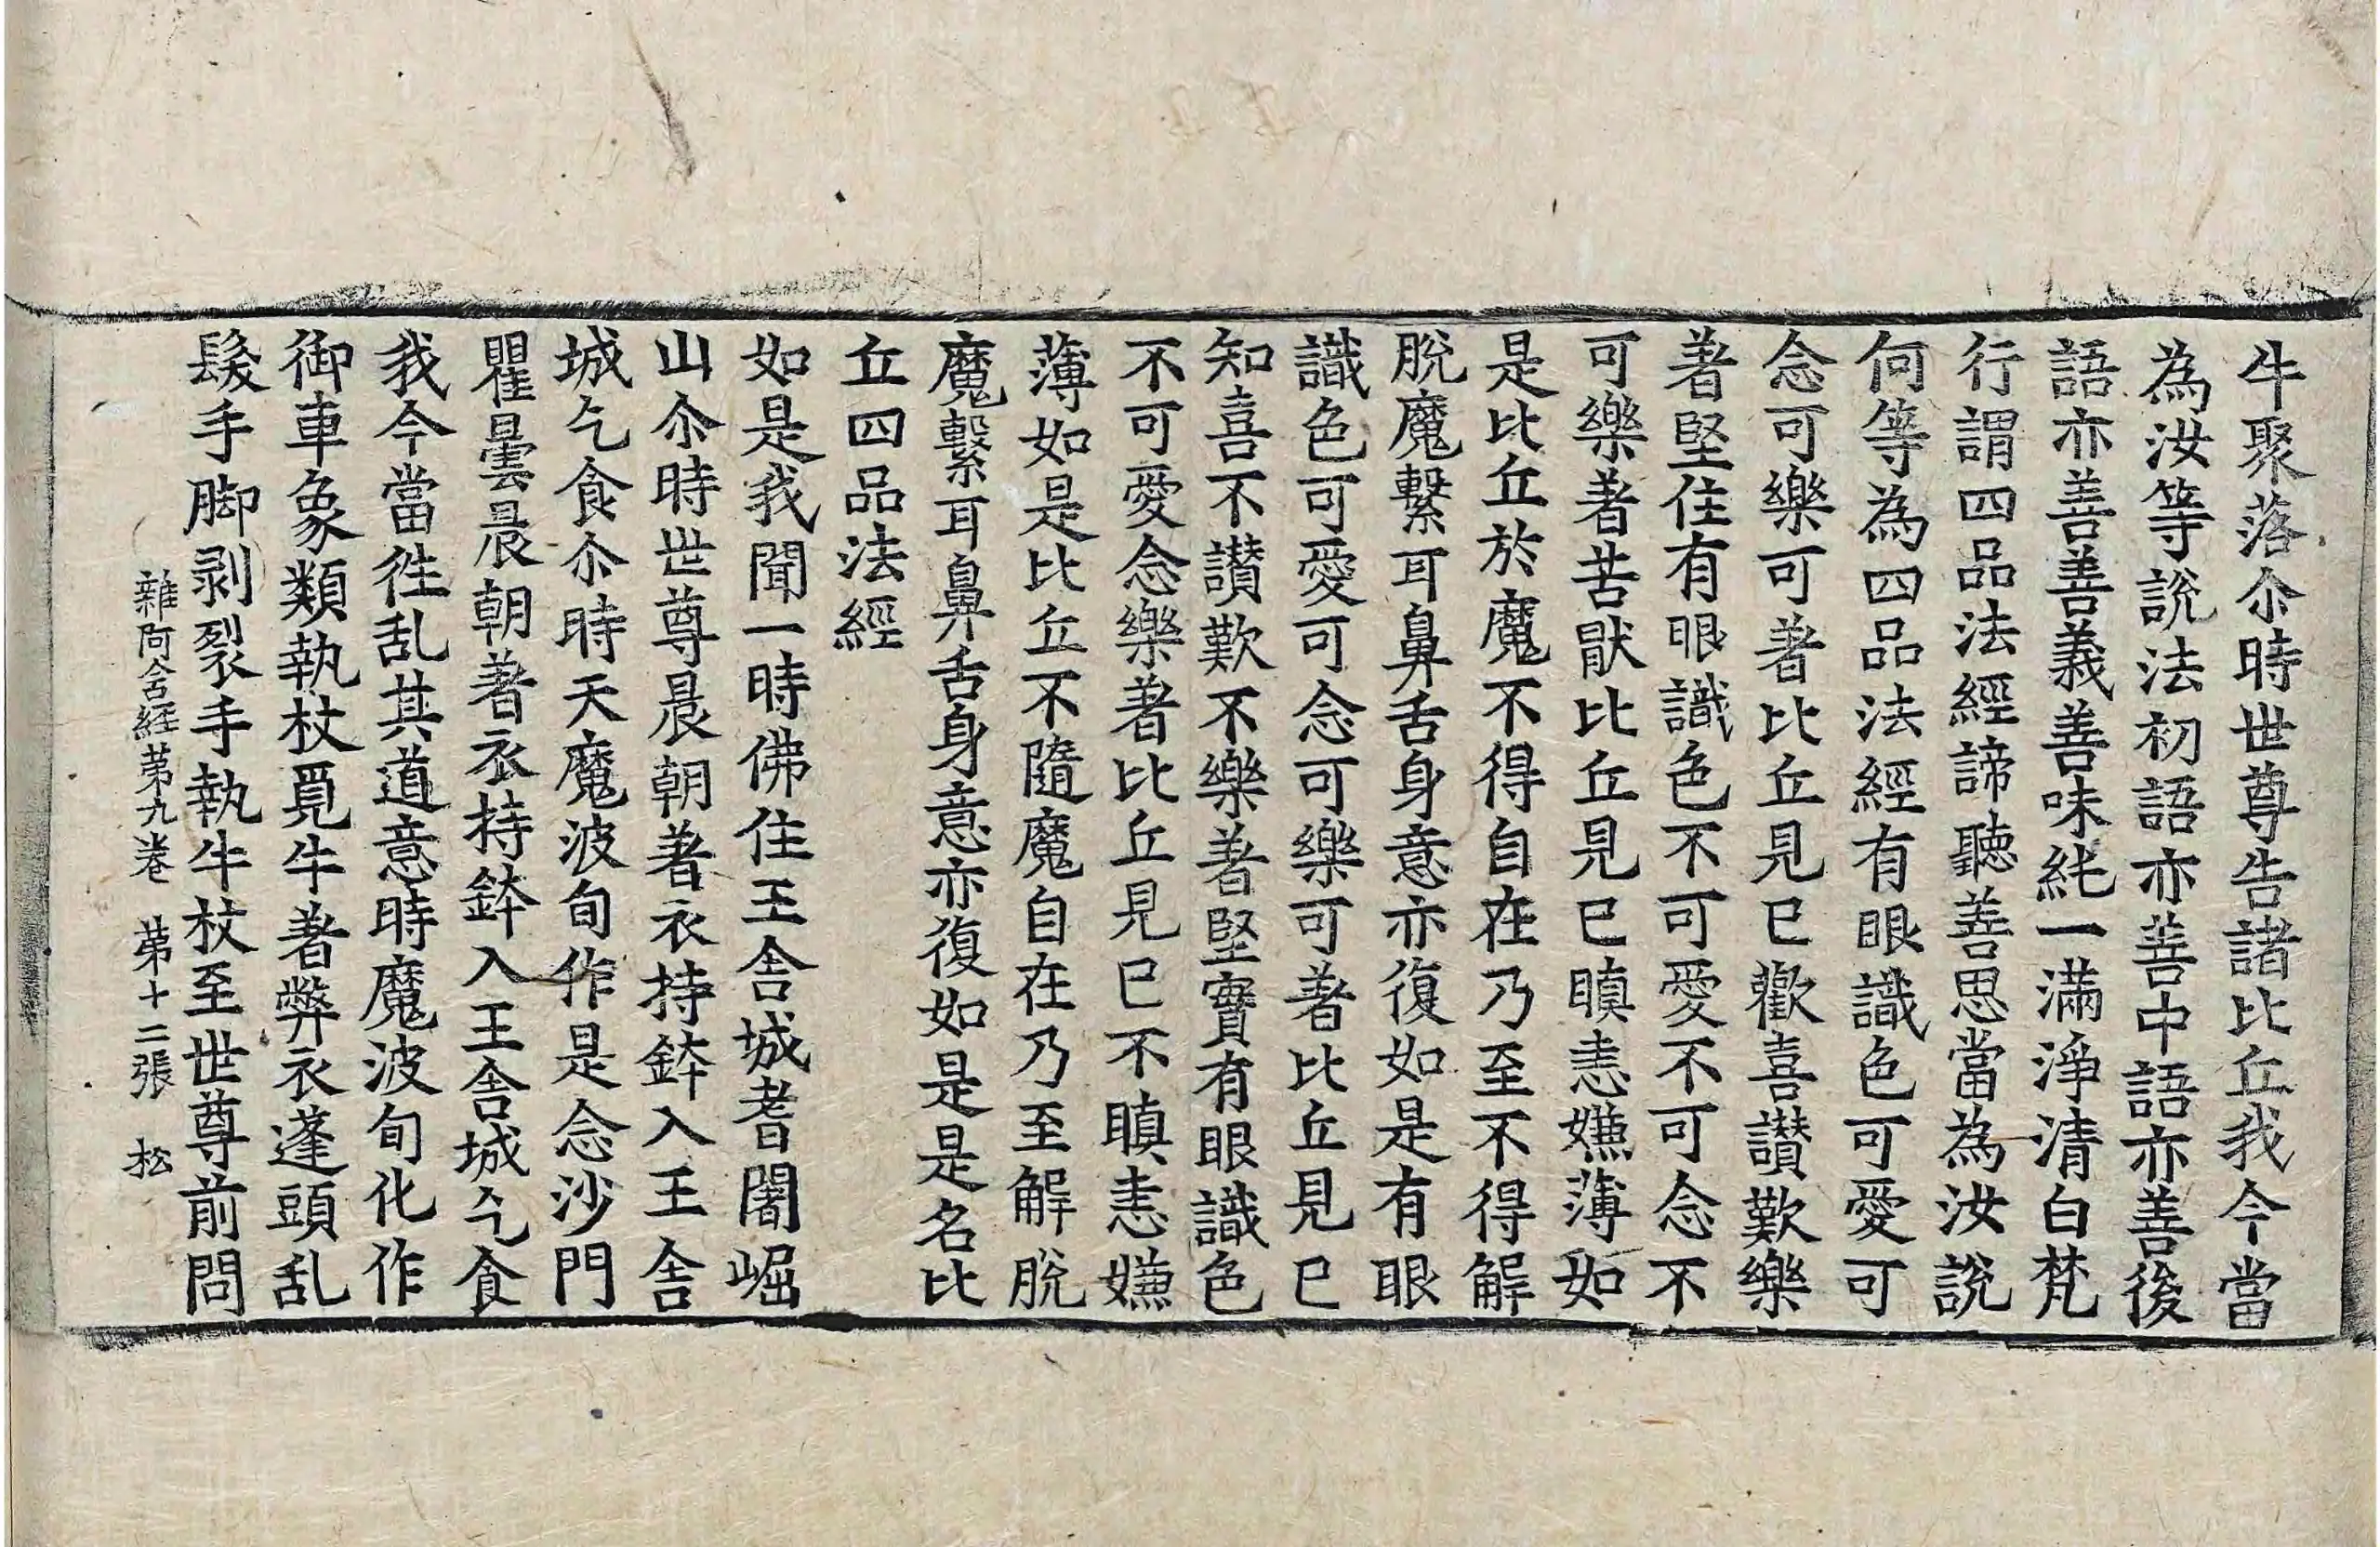 牛聚落尒時世尊告諸比丘我今當
為汝等說法初語亦善中語亦善後
語亦善善義善味純一滿淨清白梵
行謂四品法經諦聽善思當為汝說
何等為四品法經有眼識色可愛可
念可樂可著比丘見已歡喜讃歎樂
著堅住有眼識色不可愛不可念不
可樂著苦猒比丘見已瞋恚嫌薄如
是比丘於魔不得自在乃至不得解
脫魔繫耳鼻舌身意亦復如是有眼
識色可愛可念可樂可著比丘見已
知喜不讃歎不樂著堅實有眼識色
不可愛念樂著比丘見已不瞋恚嫌
薄如是比丘不隨魔自在乃至解脫
魔繫耳鼻舌身意亦復如是是名比
丘四品法經
如是我聞一時佛住王舍城耆闍崛
山尒時世尊晨朝著衣持鉢入王舍
城乞食尒時天魔波旬作是念沙門
瞿曇晨朝著衣持鉢入王舍城乞食
我今當往乱其道意時魔波旬化作
御車象類執杖覓牛著弊衣蓬頭乱
髮手脚剥裂手執牛杖至世尊前問
雜阿含経苐九卷 苐十二張 松